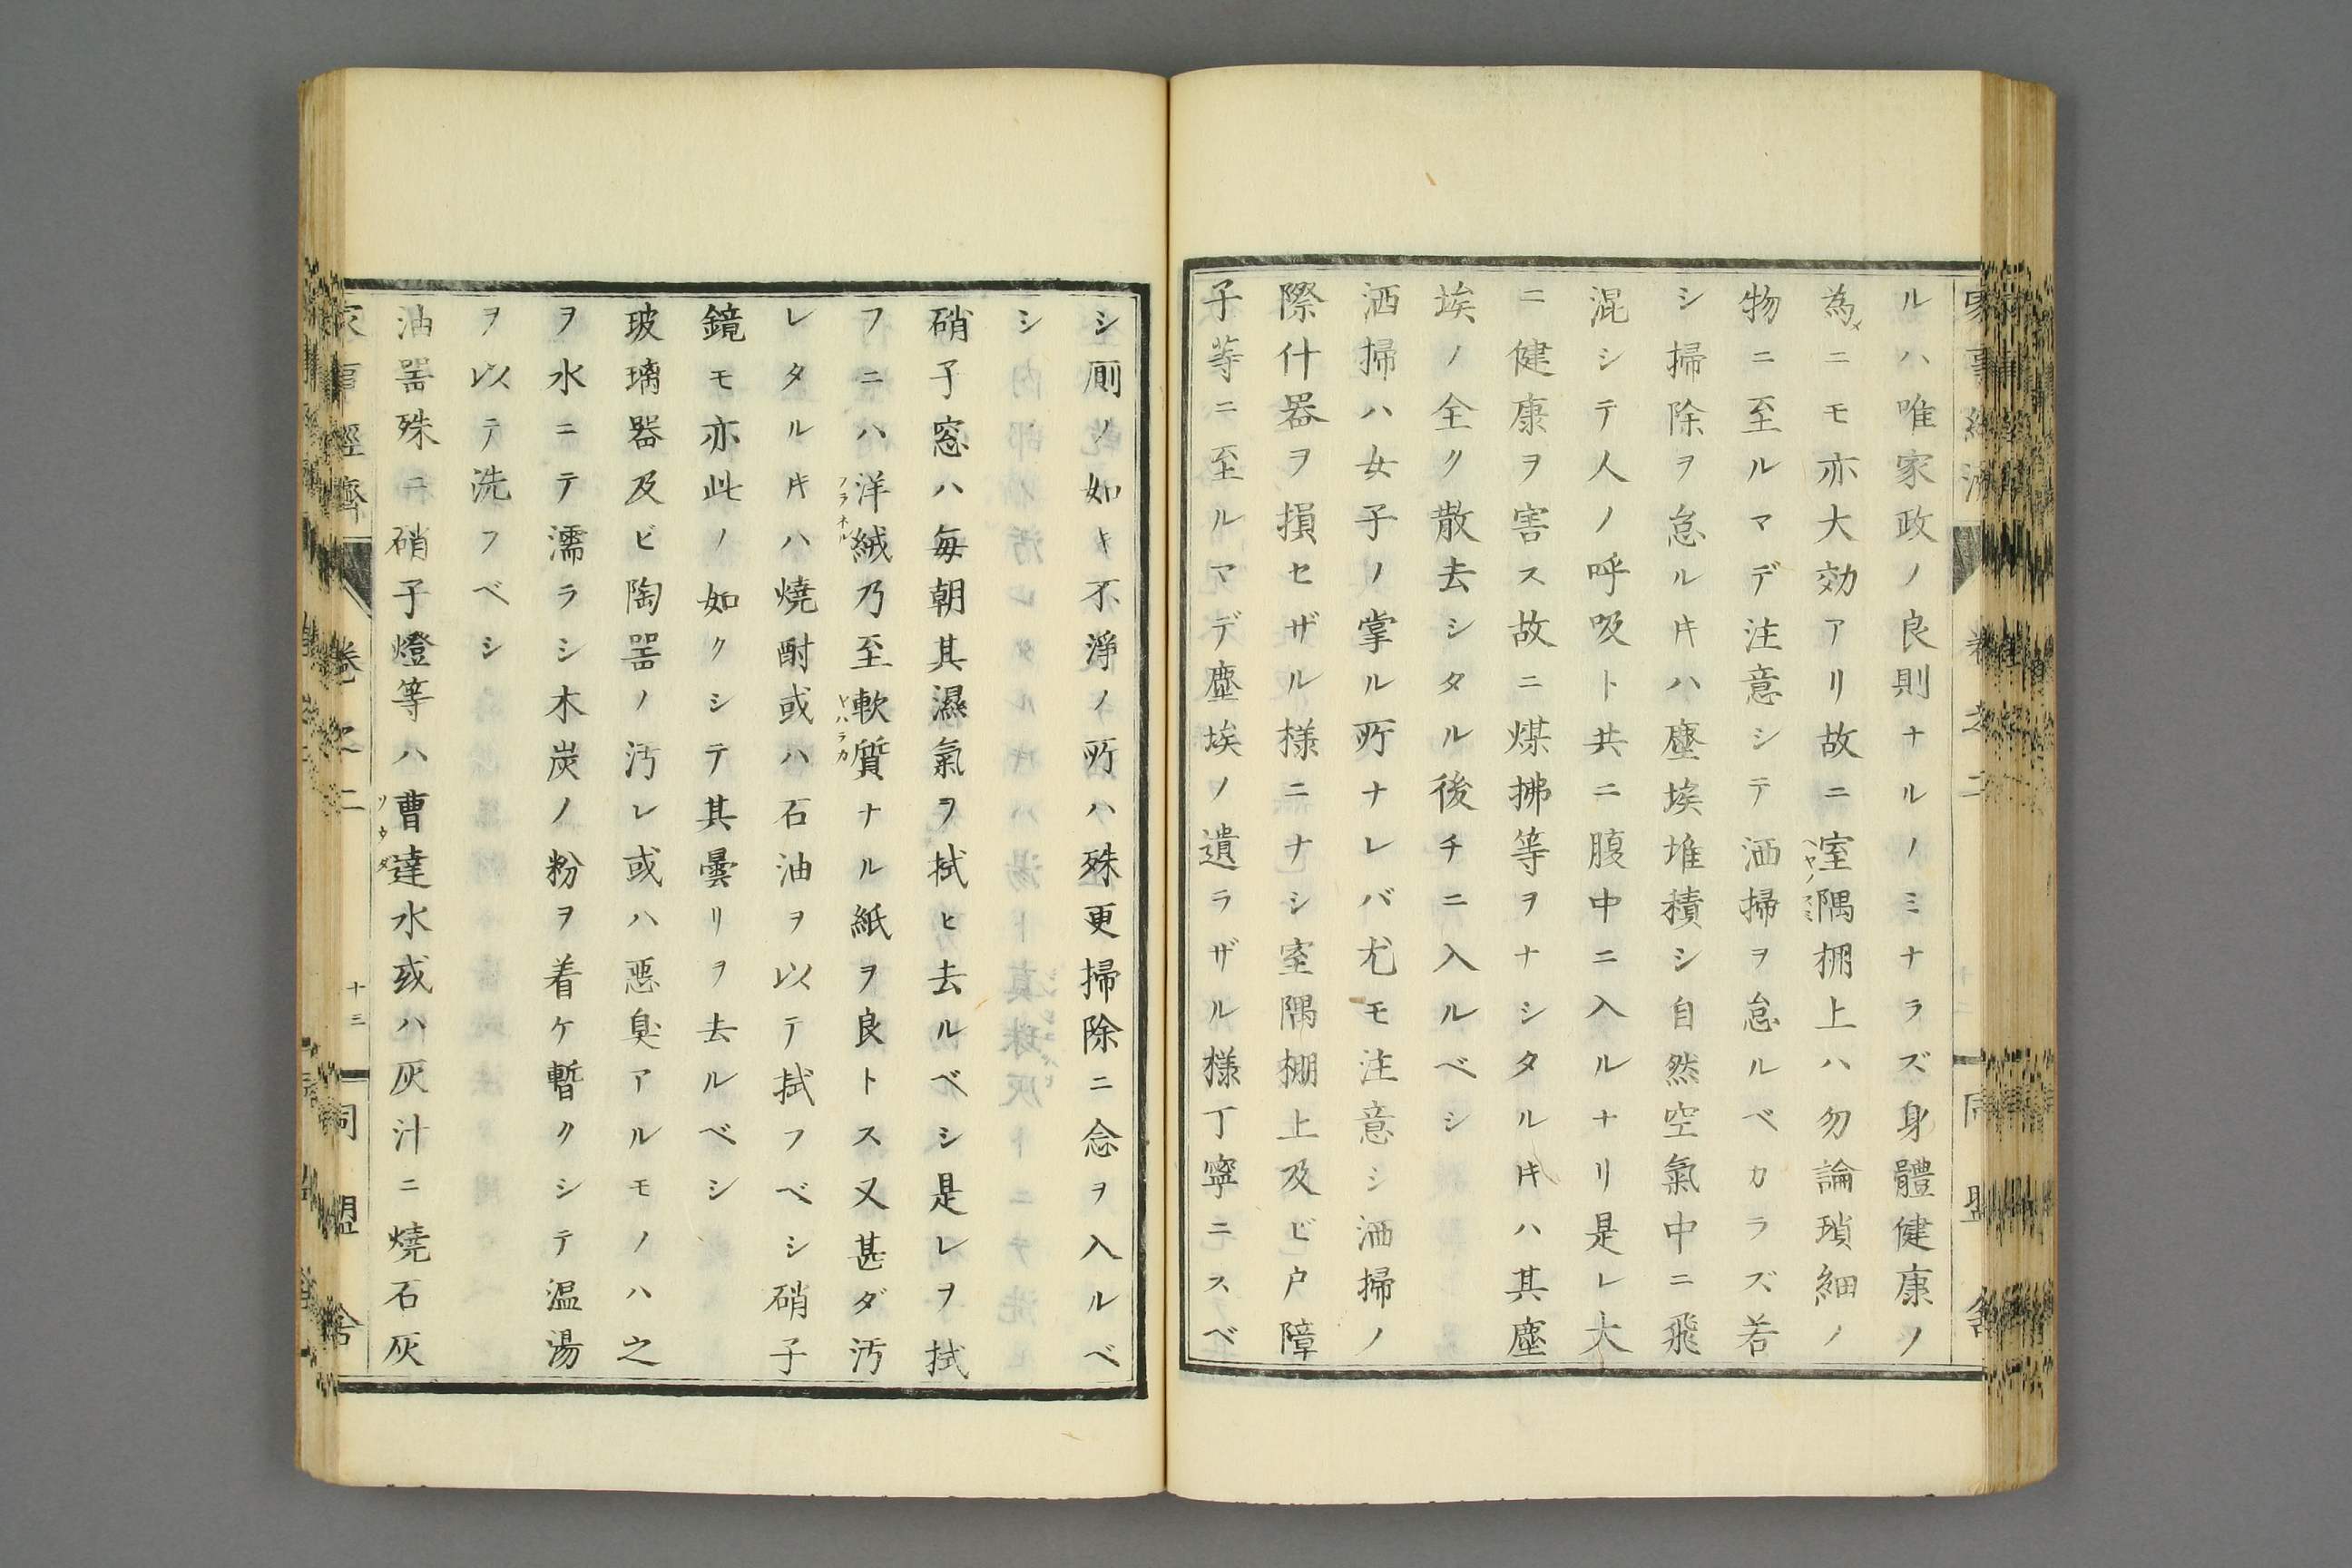 ルハ唯家政ノ良則ナルノミナラズ身體健康ノ
為メニモ亦大効アリ故ニ室隅棚上ハ勿論瑣細ノ
ヘヤノスミ
物ニ至ルマデ注意シテ洒掃ヲ怠ルベカラズ若
シ掃除ヲ怠ルキハ塵埃堆積シ自然空氣中ニ飛
混シテ人ノ呼吸ト共ニ腹中ニ入ルナリ是レ大
ニ健康ヲ害ス故ニ煤拂等ヲナシタルキハ其塵
埃ノ全ク散去シタル後チニ入ルベシ
洒掃ハ女子ノ掌ル所ナレバ尤モ注意シ洒掃ノ
際什器ヲ損セザル樣ニナシ室隅棚上及ビ戸障
子等ニ至ルマデ塵埃ノ遺ラザル樣丁寧ニスベ
シ厠ノ如キ不淨ノ所ハ殊更掃除ニ念ヲ入ルベ
シ
硝子窓ハ毎朝其濕氣ヲ拭ヒ去ルベシ是レヲ拭
フニハ洋絨乃至軟質ナル紙ヲ良トス又甚ダ汚
フラネル
ヤハラカ
レタルキハ燒酎或ハ石油ヲ以テ拭フベシ硝子
鏡モ亦此ノ如クシテ其曇リヲ去ルベシ
玻璃器及ビ陶噐ノ汚レ或ハ惡臭アルモノハ之
ヲ水ニテ濡ラシ木炭ノ粉ヲ着ケ暫クシテ温湯
ヲ以テ洗フベシ
油噐殊ニ硝子燈等ハ曹達水或ハ灰汁ニ燒石灰
ソウダ
家事經濟
卷之二
十三
同盟舍